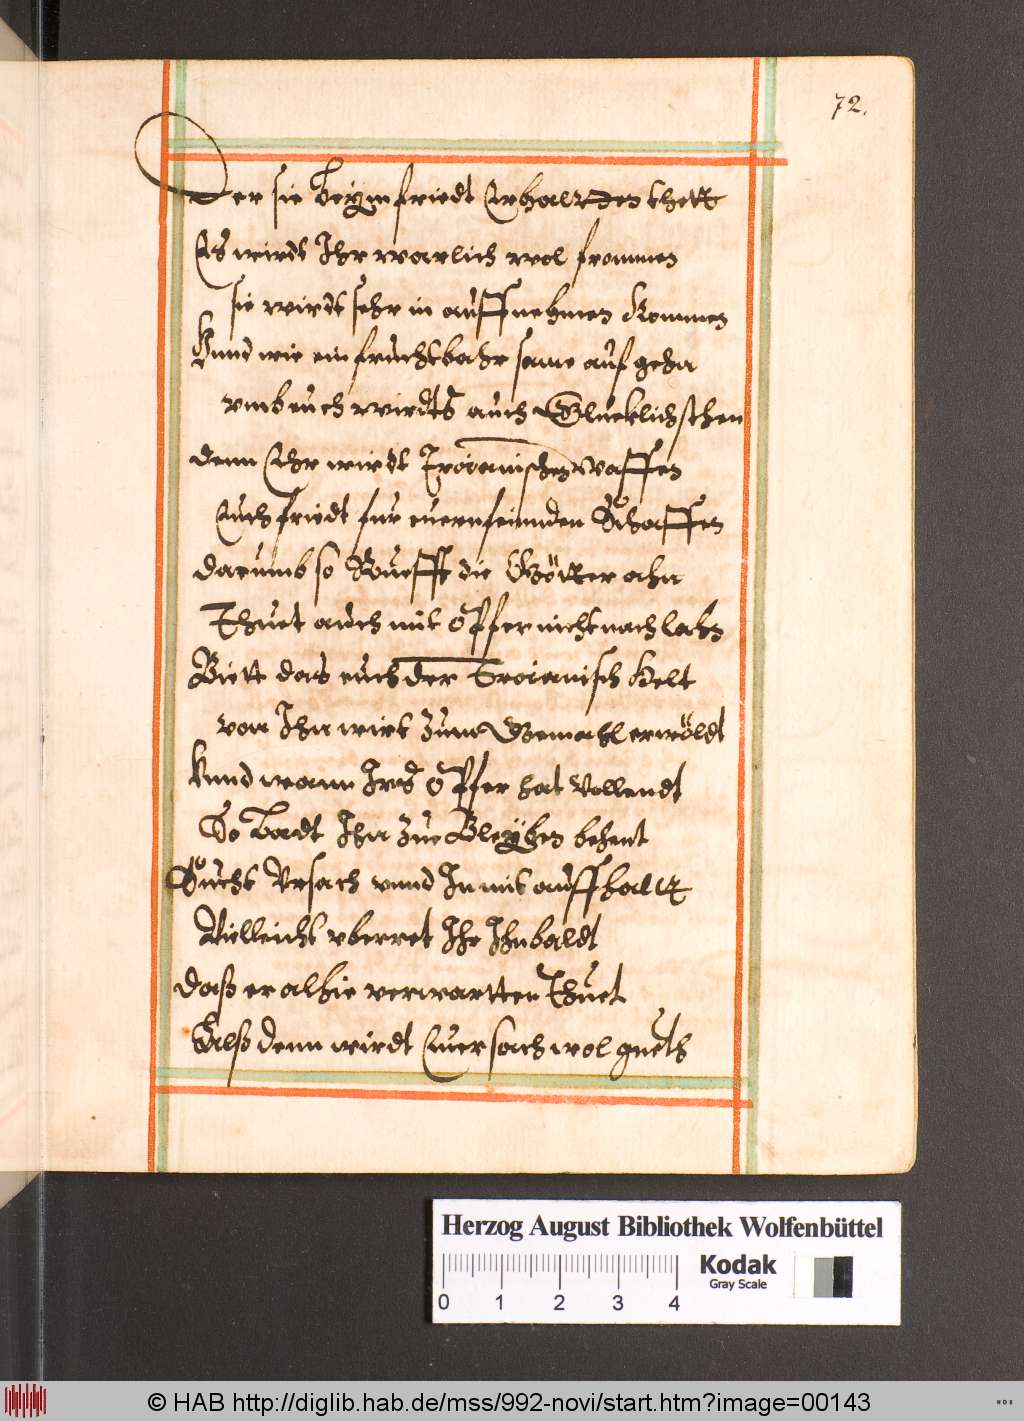 72.
Der sie beym friedt Erhaltten thett
Es wirdt Ihr warlich wol frommen
sie wirdt sehr in auffnehmen Kommen
Vnnd wie ein fruchtbahr same auf gehn
vmb euch wirdts auch Glucklich stehen
denn Ehr wirdt Troianischen Waffen
Euch friedt fur euern feinnden Schaffen
darumb so Ruefft die Götter ahn
Thuet auch mit öpffer nicht nach lahn
Bitt das euch der Troianisch Helt
von Ihn wirt zum Gemahl erwöldt
Vnnd wann Irs öpffer hat Vollendt
So badt Ihn zue Bleyben behent
Sucht Vrsach vnnd In mit auffhalt
Villeicht vberret Ihr Ihn baldt
daß er alhie verwartten Thuet
Alß denn wirdt Euer sach wol guet
Herzog August Bibliothek Wolfenbüttel
Kodak
Gray Scale
0 1 2 3 4
© HAB http://diglib.hab.de/mss/992-novi/start.htm?image=00143